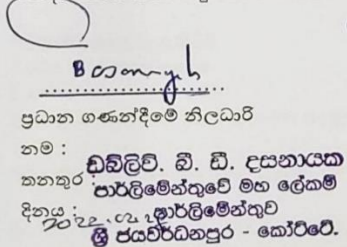 ප්‍රධාන ගණන්දීමේ නිලධාරි
නම :
ඩබ්ලිව්. බී. ඩී. දසනායක
තනතුර :
පාර්ලිමේන්තුවේ මහ ලේකම්
දිනය :
පාර්ලිමේන්තුව
ශ්‍රී ජයවර්ධනපුර - කෝට්ටේ.